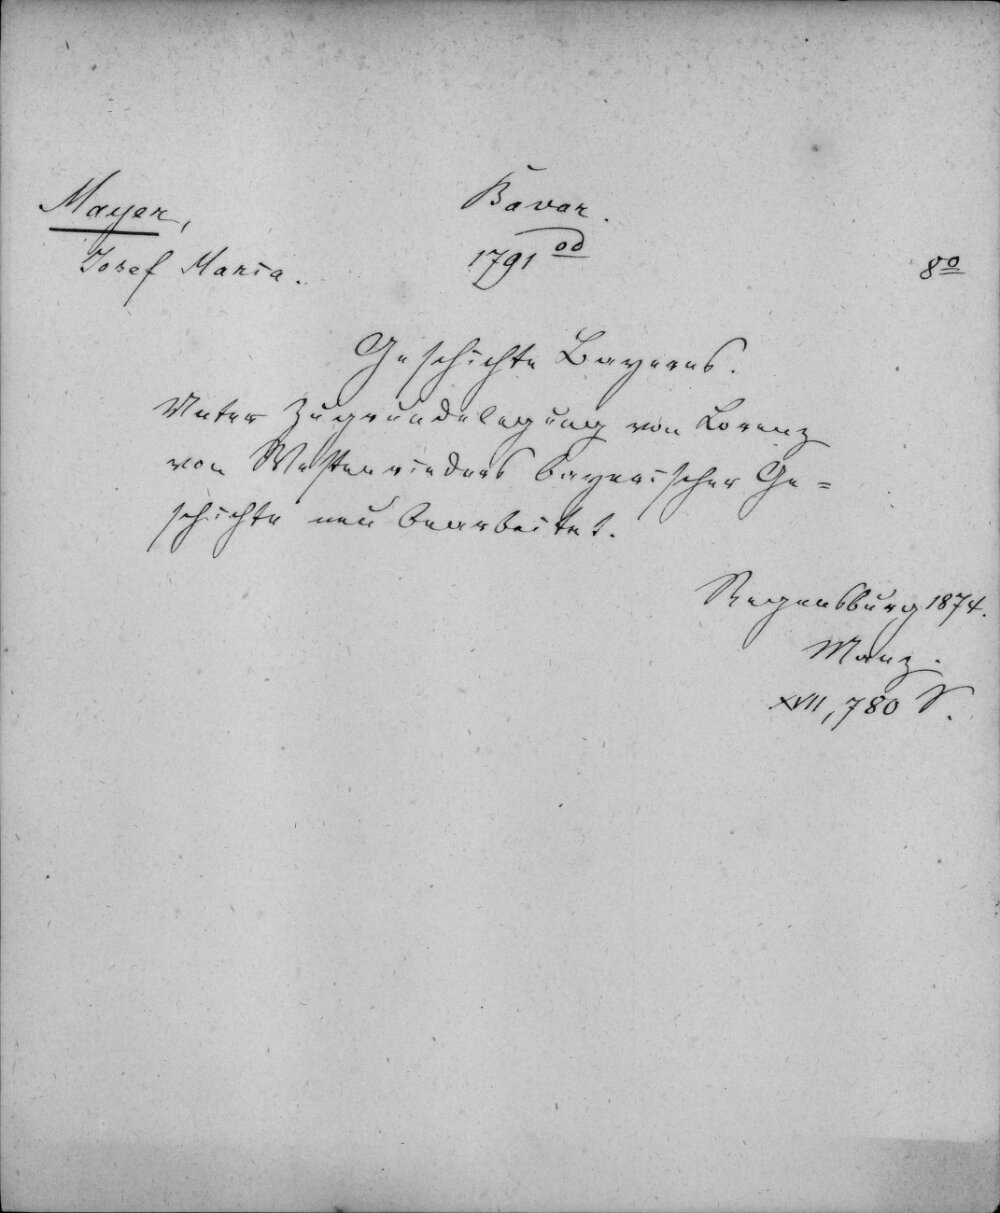 Mayer,
Josef Maria.
Bavar.
1791 od
8o
Geschichte Bayerns.
Unter Zugrundelegung von Lorenz
von Westenrieders bayerischer Ge=
schichte neu bearbeitet.
Regensburg 1874.
Manz.
XVII, 780 S.